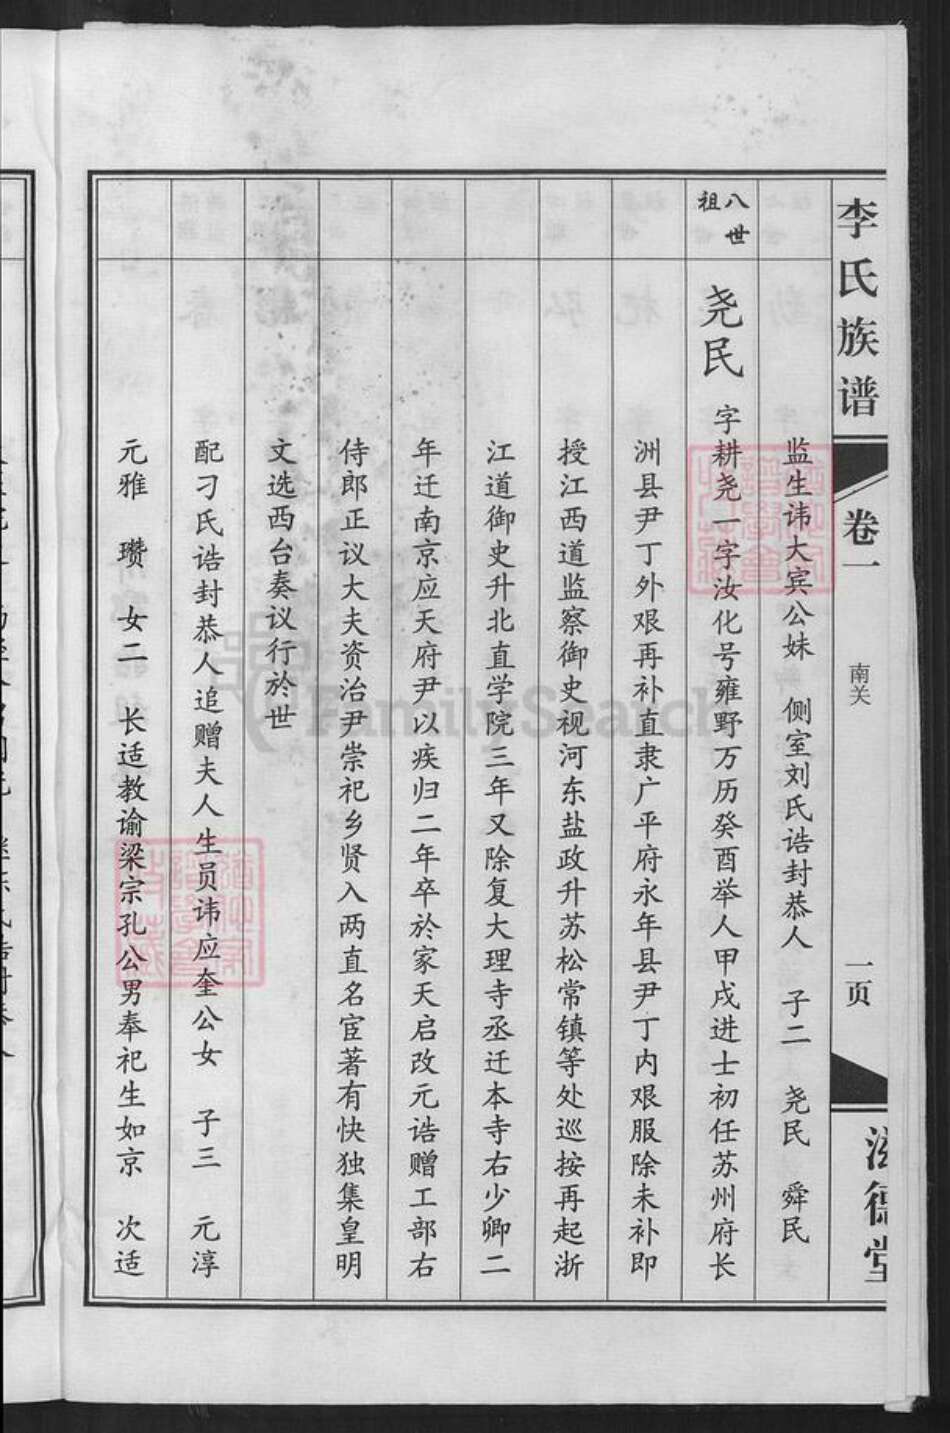 李氏族谱
卷一
南关
一页
德堂
监生讳大宾公妹 侧室刘氏诰封恭人 子二 尧民 舜民
八世祖
尧民 字耕尧一字汝化号雍野万历癸酉举人甲戌进士初任苏州府长
洲县尹丁外艰再补直隶广平府永年县尹丁内艰服除未补即
授江西道监察御史视河东盐政升苏松常镇等处巡按再起浙
江道御史升北直学院三年又除复大理寺丞迁本寺右少卿二
年迁南京应天府尹以疾归二年卒於家天启改元诰赠工部右
侍郎正议大夫资治尹崇祀乡贤入两直名宦著有快独集皇明
文选西台奏议行於世
配刁氏诰封恭人追赠夫人生员讳应奎公女 子三 元淳
元雅 瓒 女二 长适教谕梁宗孔公男奉祀生如京 次适
FamilySearch